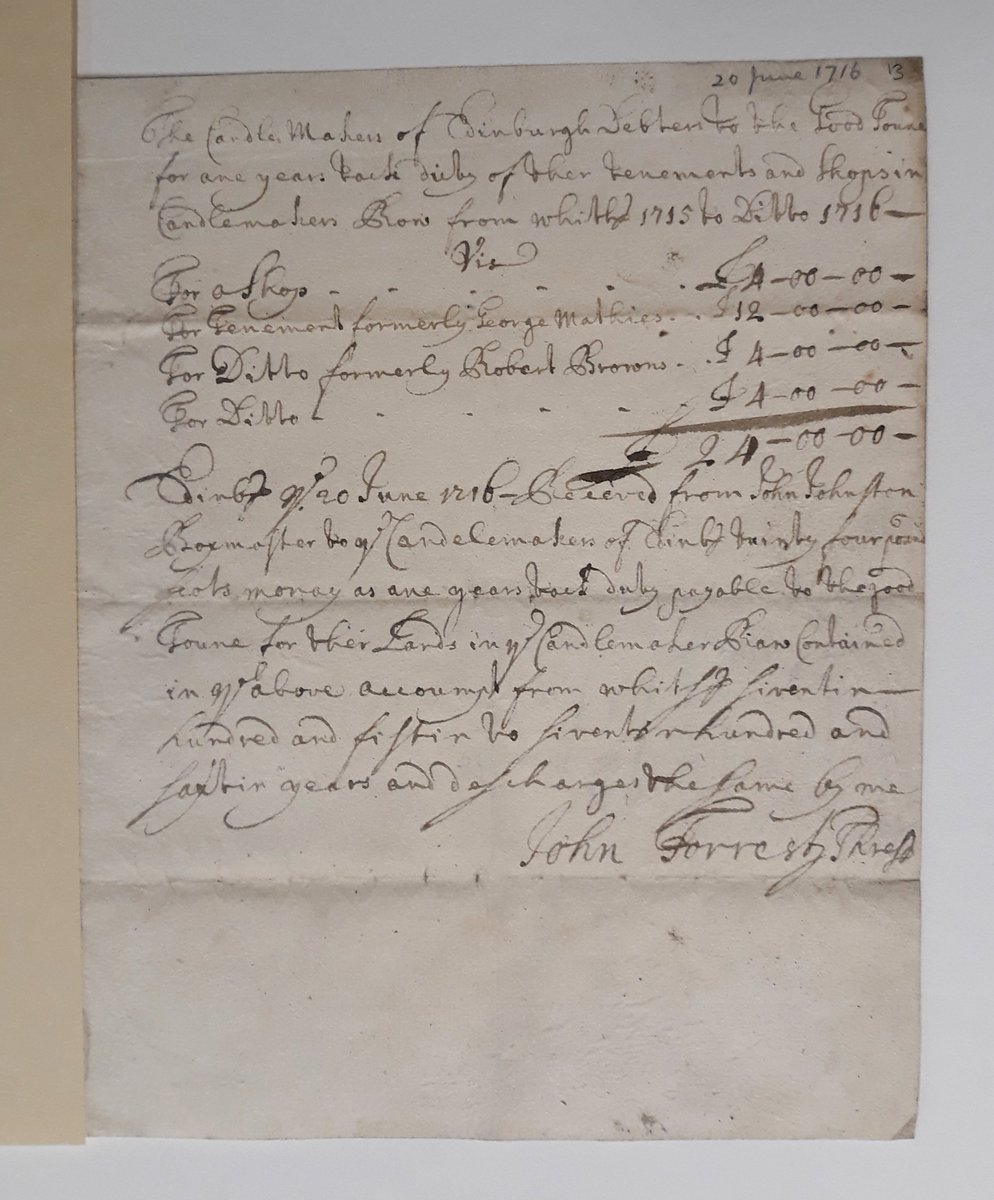 20 June 1716 13
The Candle Makers of Edinburgh Debters to the Good Toune
for ane years tack duty of ther tenements and Shops in
Candlemakers Row from whits 1715 to Ditto 1716—
Viz
For a Shop - - - - - - £ 4-00-00-
For Tenement formerly George Mathies. . £ 12-00-00-
For Ditto formerly Robert Browns - . £ 4-00-00-
For Ditto - - - - - £ 4-00-00-
£ 24-00-00-
Edinbr ye 20 June 1716 - Receved from John Johnston
Boxmaster to ye Candelemakers of Edinbr twinty four pound
scots monay as ane years tack duty payable to the good
Toune for ther Lands in ye Candlemaker Raw Contained
in ye above accoumpt from whits siventin—
hundred and fiftin to siventin hundred and
saxtin years and descharges the same by me
John Forrest Thresr